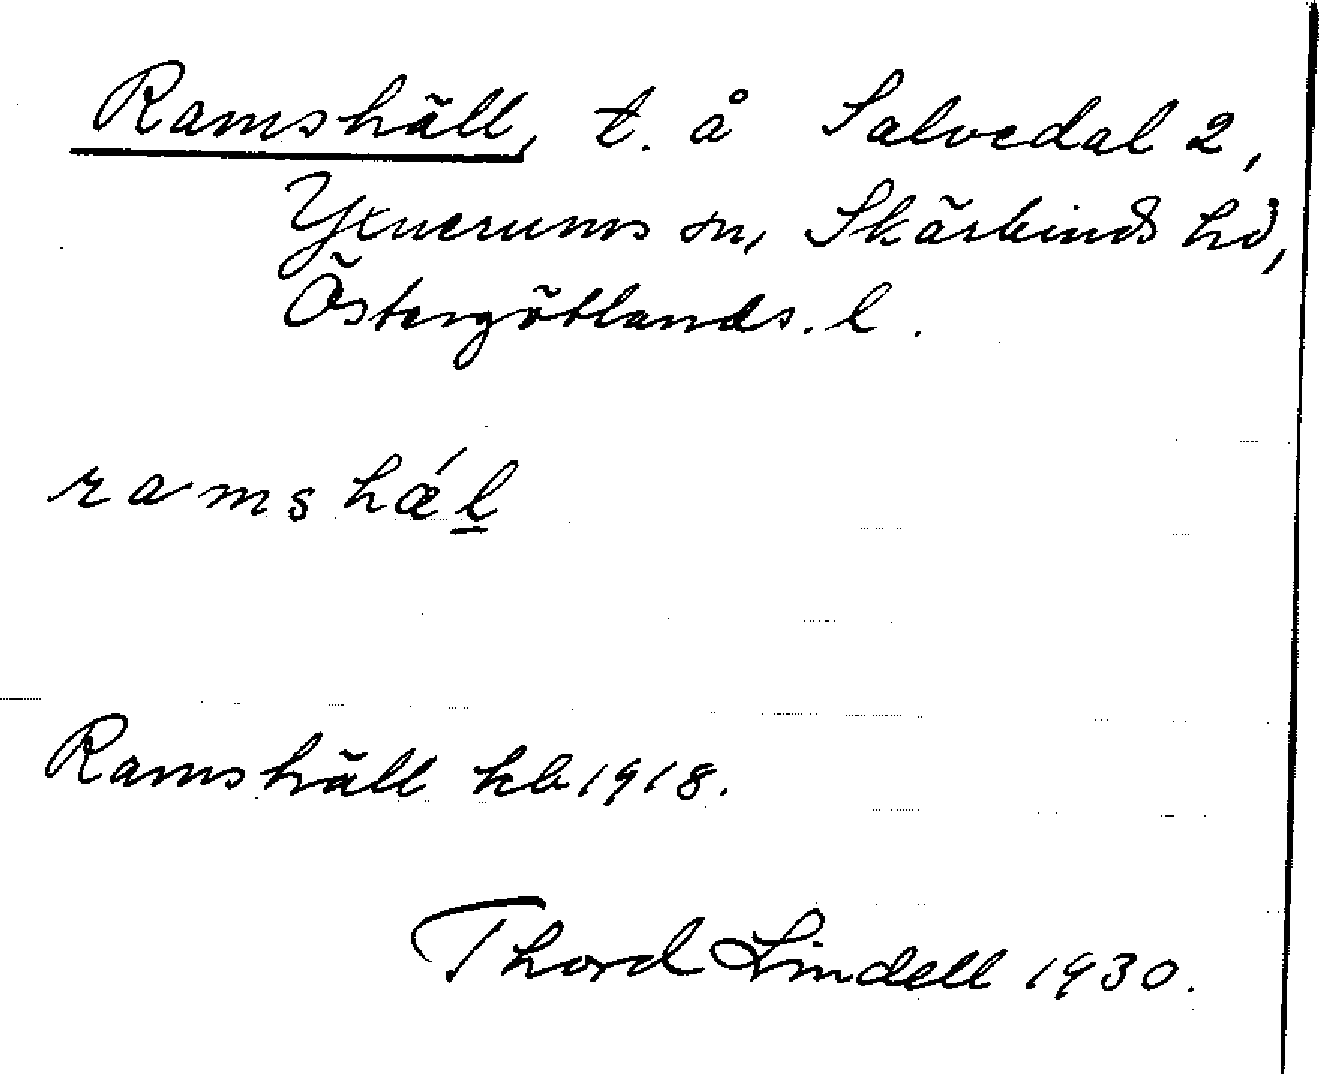 Ramshäll, t. å Salvedal 2,
Yxnerums sn, Skärkinds hd,
Östergötlands. l.
ramshǽl̲
Ramshäll kb 1918.
Thord Lindell 1930.